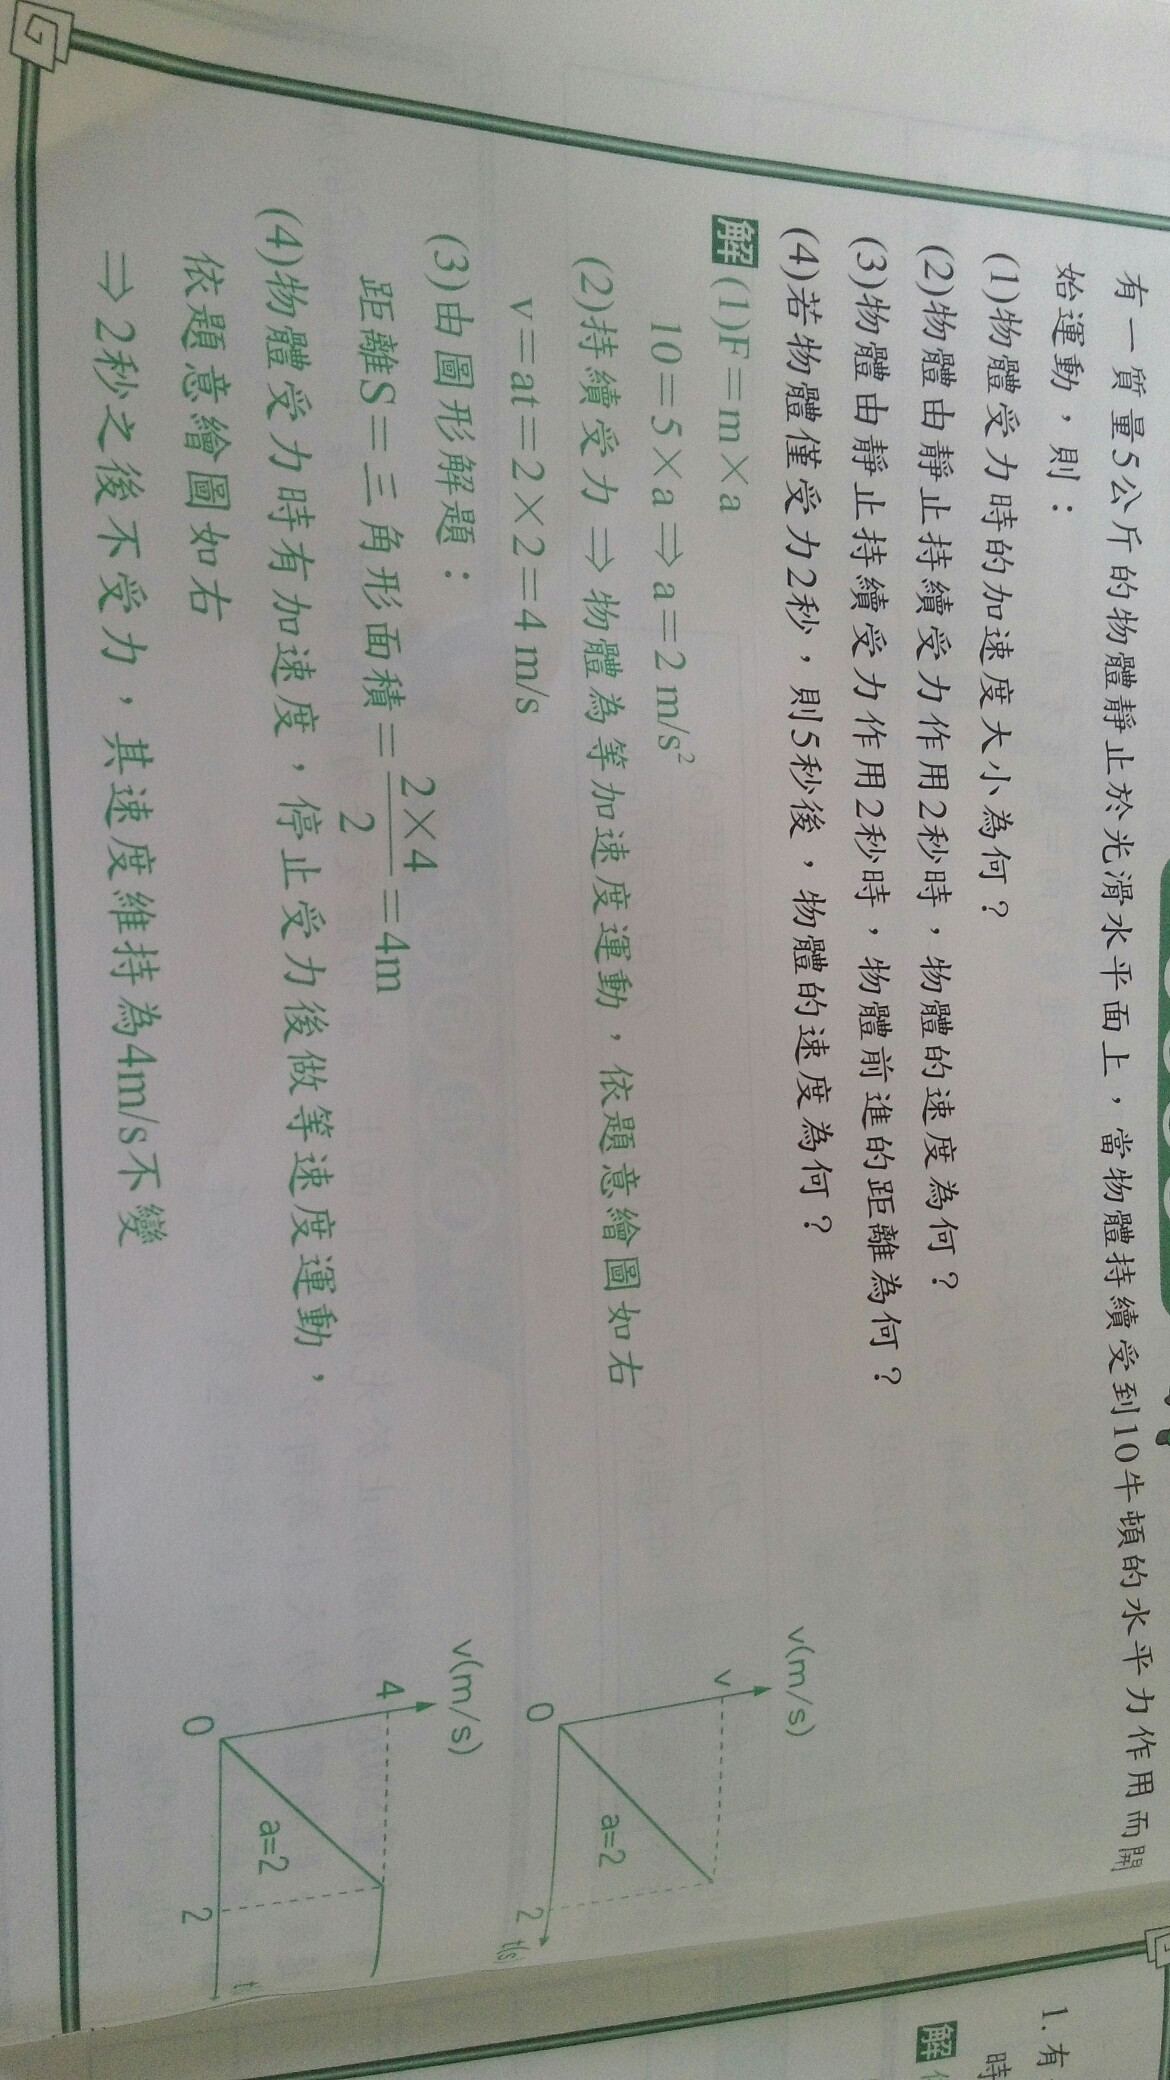 有一質量5公斤的物體靜止於光滑水平面上，當物體持續受到10牛頓的水平力作用而開
始運動，則：
(1)物體受力時的加速度大小為何？
(2)物體由靜止持續受力作用2秒時，物體的速度為何？
(3)物體由靜止持續受力作用2秒時，物體前進的距離為何？
(4)若物體僅受力2秒，則5秒後，物體的速度為何？
解(1)F＝m×a
10＝5×a⇒a＝2 m/s²
(2)持續受力⇒物體為等加速度運動，依題意繪圖如右
v＝at＝2×2＝4 m/s
(3)由圖形解題：
距離S＝三角形面積＝2×4/2＝4m
(4)物體受力時有加速度，停止受力後做等速度運動，
依題意繪圖如右
⇒2秒之後不受力，其速度維持為4m/s不變
v(m/s)
v
a=2
0
2
t(s)
v(m/s)
4
a=2
0
2
t
1. 有
時
解